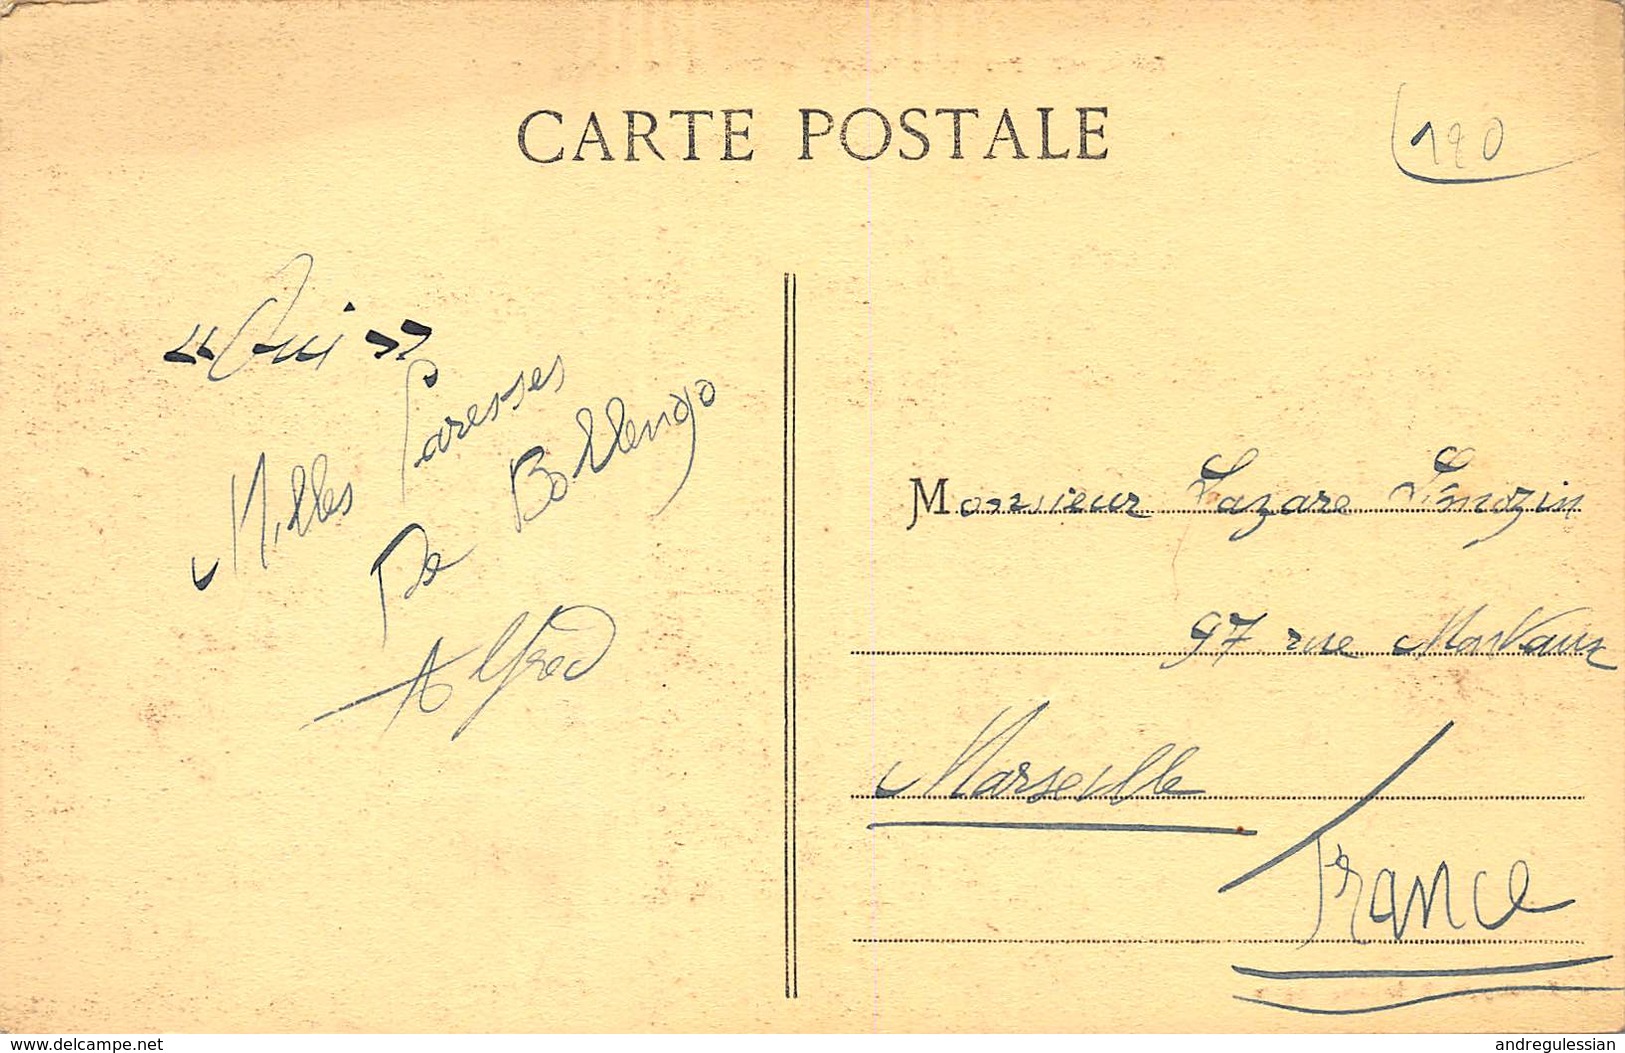 CARTE POSTALE
120
« Oui »
Milles Caresses
De Bollengo
Alfred
Monsieur Lazare Limozin
97 rue Marvaux
Marseille
France
www.delcampe.net
andregulessian